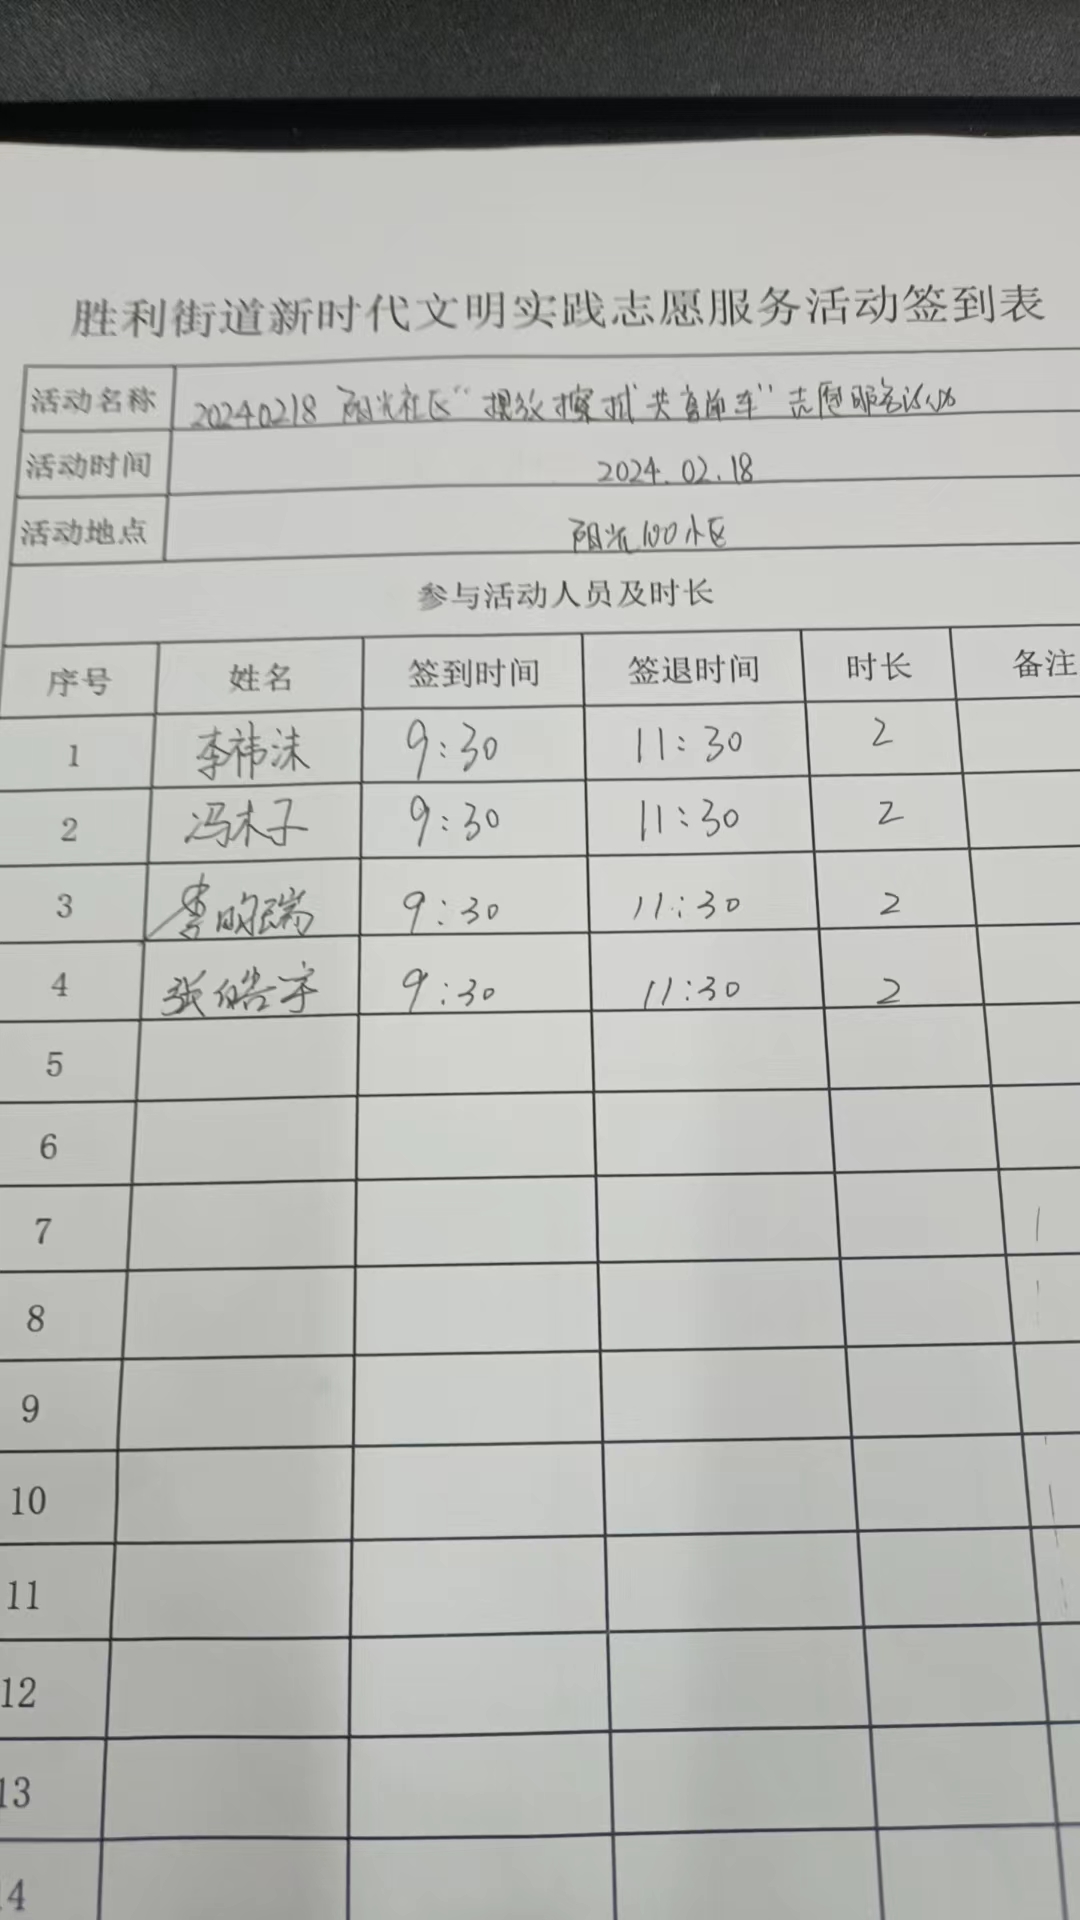 胜利街道新时代文明实践志愿服务活动签到表
活动名称 20240218 阳光社区“摆放擦拭共享单车”志愿服务活动
活动时间 2024.02.18
活动地点 阳光100小区
参与活动人员及时长
序号 姓名 签到时间 签退时间 时长 备注
1 李祎沫 9:30 11:30 2
2 冯木子 9:30 11:30 2
3 李明瑞 9:30 11:30 2
4 张皓宇 9:30 11:30 2
5
6
7
8
9
10
11
12
13
14